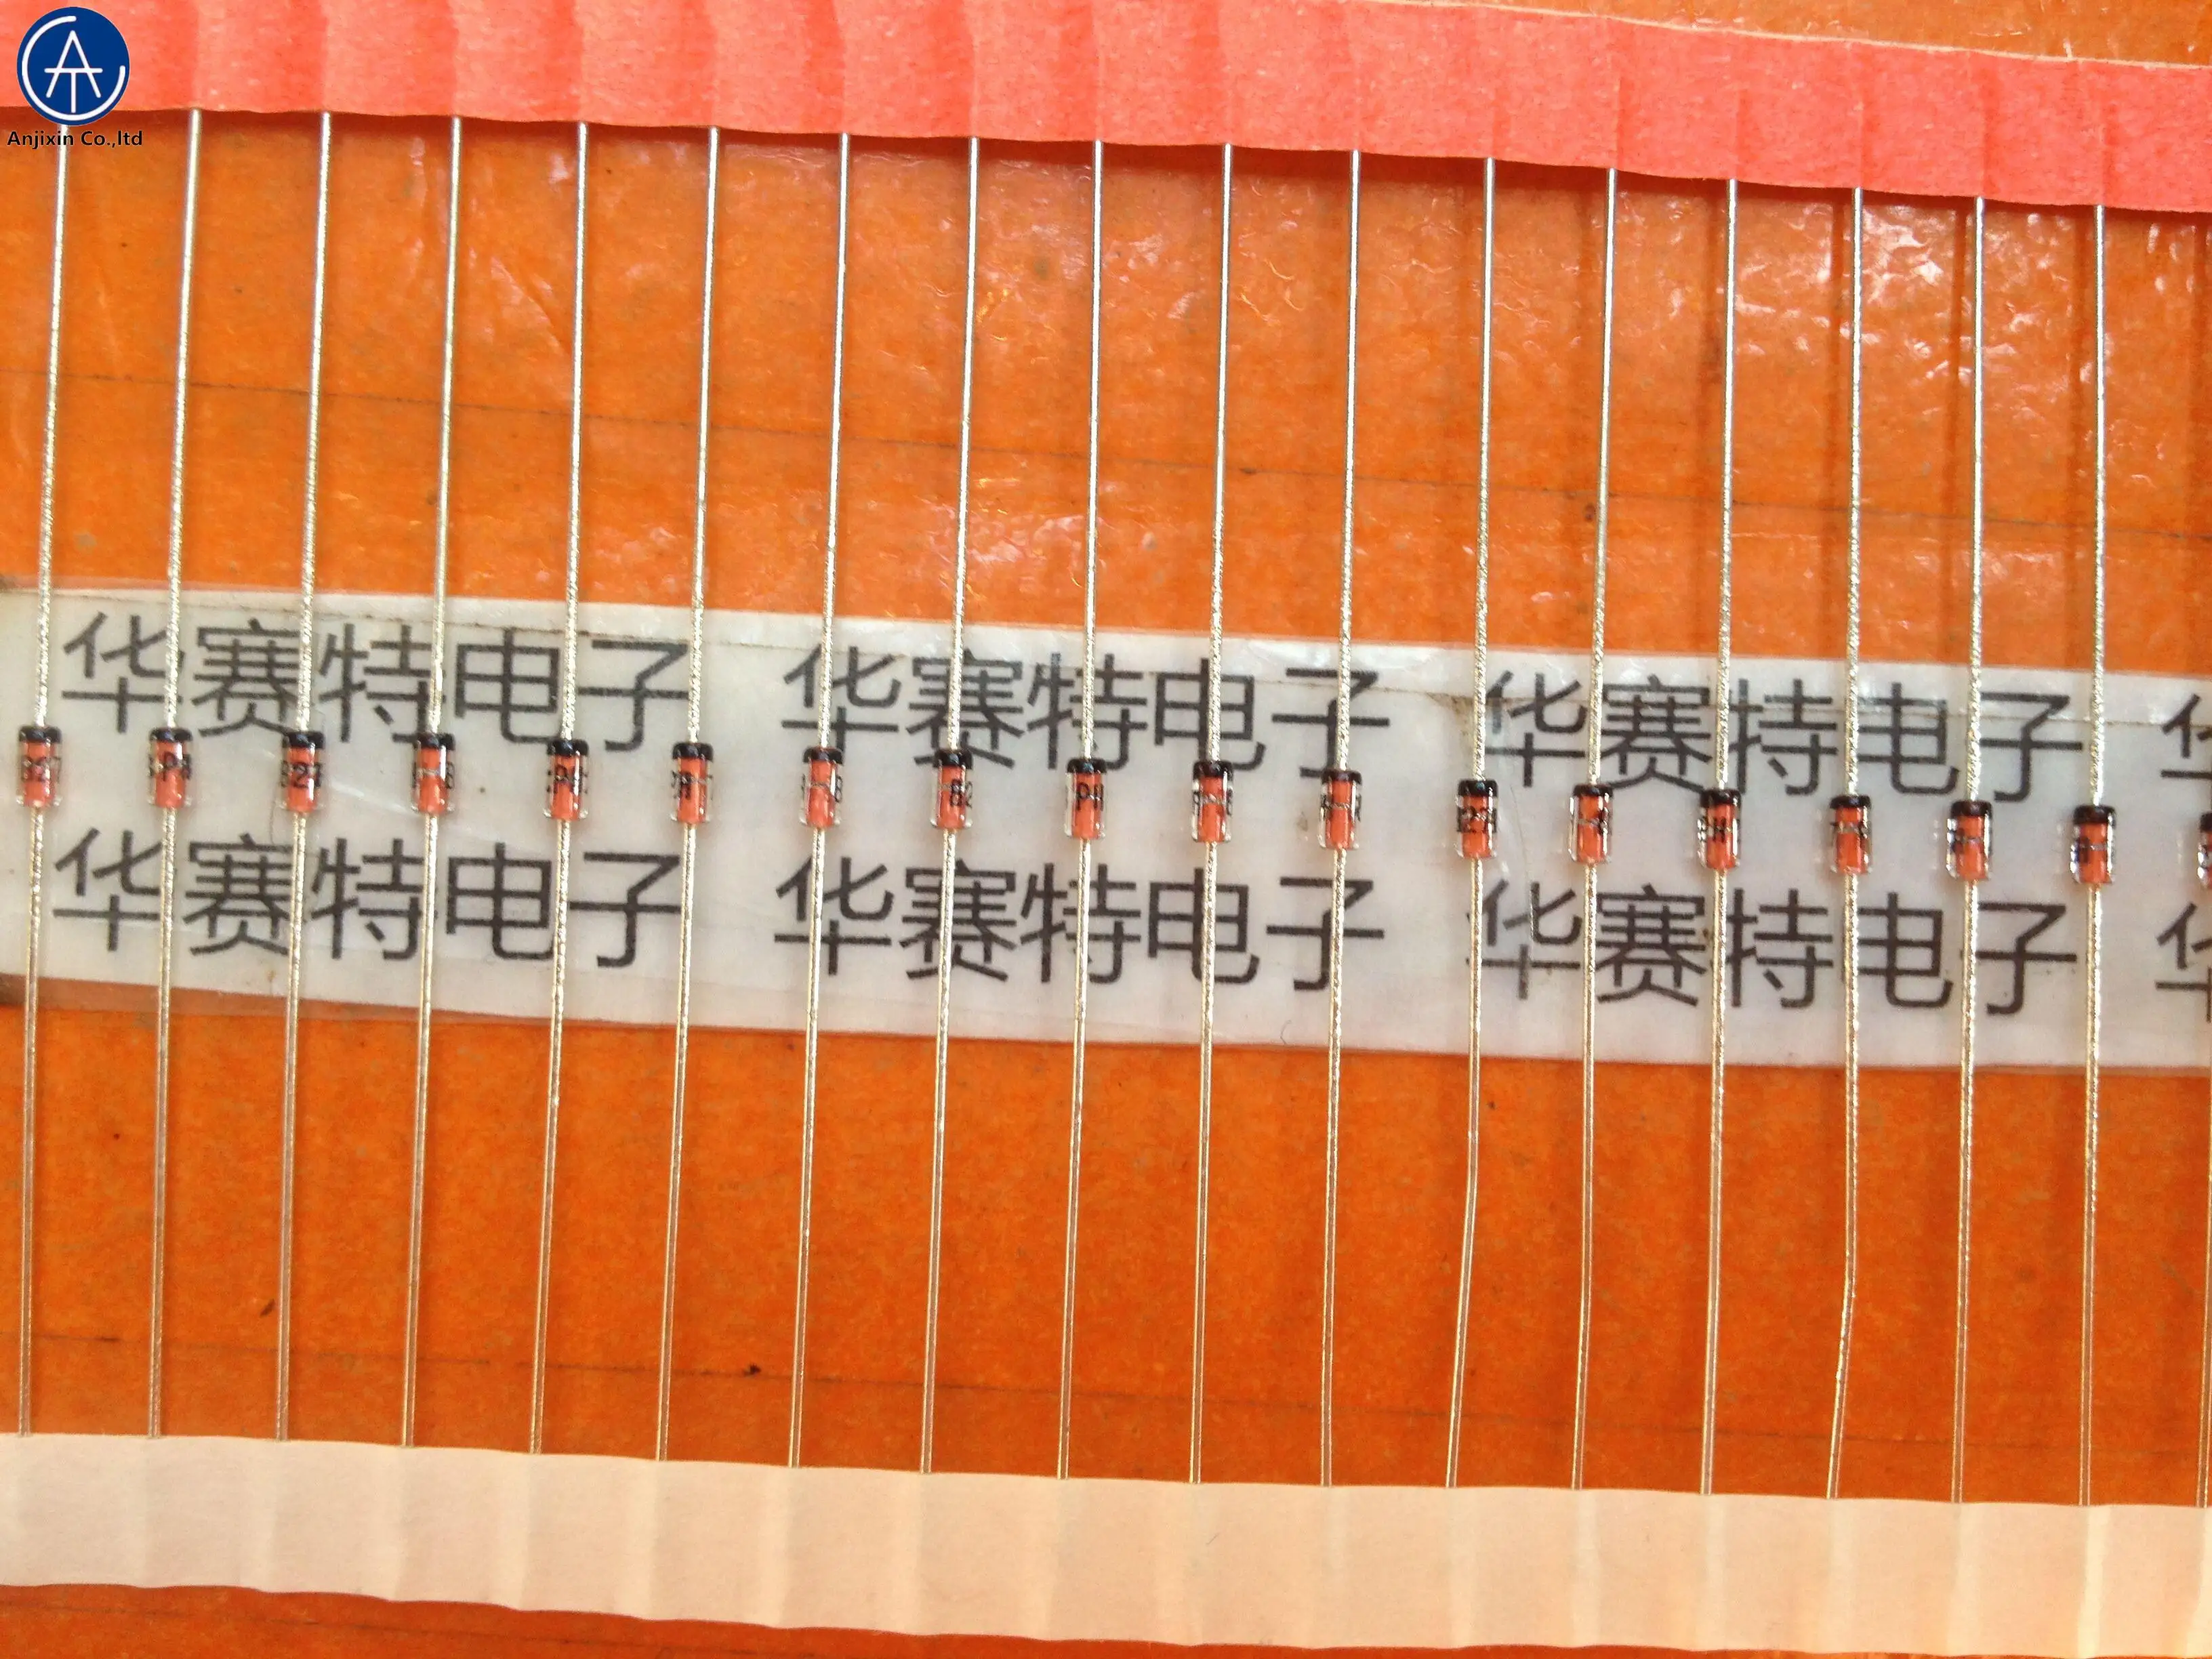 Anjixin Co.,ltd
华赛特电子 华赛特电子 华赛特电子
华赛特电子 华赛特电子 华赛特电子